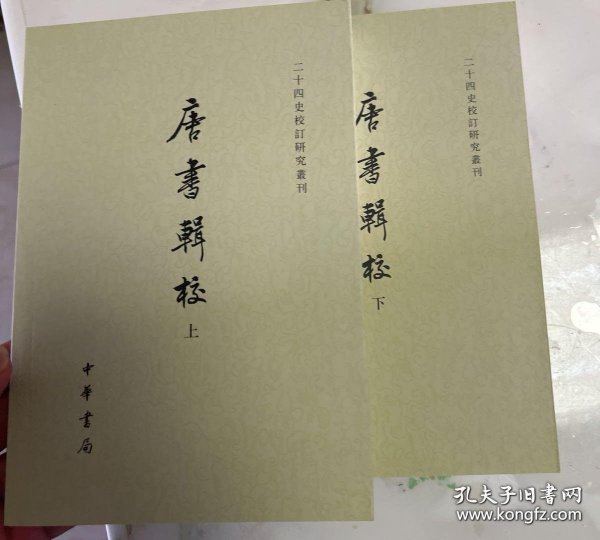 二十四史校訂研究叢刊
唐書輯校
上
中華書局
二十四史校訂研究叢刊
唐書輯校
下
孔夫子旧书网
www.kongfz.com